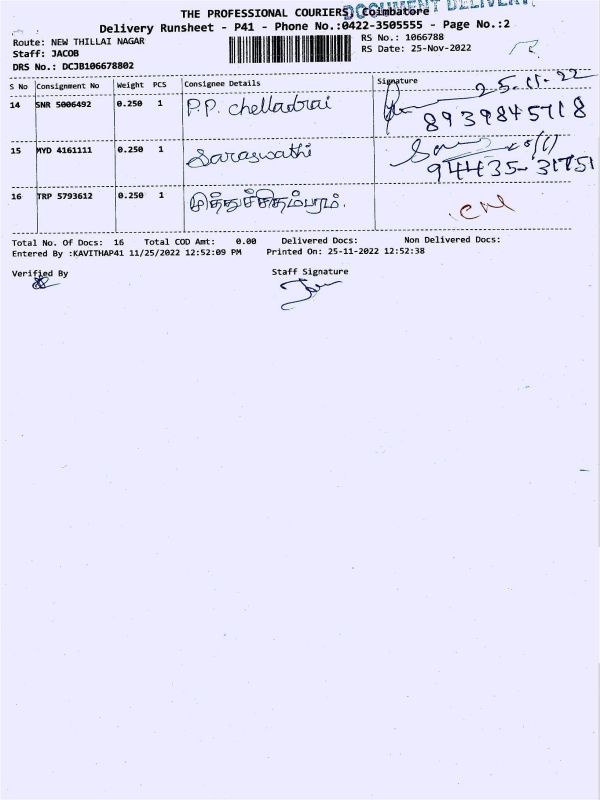 THE PROFESSIONAL COURIERS, Coimbatore
DOCUMENT DELIVERY
Delivery Runsheet - P41 - Phone No.:0422-3505555 - Page No.:2
Route: NEW THILLAI NAGAR
RS No.: 1066788
Staff: JACOB
RS Date: 25-Nov-2022
DRS No.: DCJB106678802
S No Consignment No Weight PCS Consignee Details Signature
25.11.22
14 SNR 5006492 0.250 1 P.P. chelladurai
8939845718
15 MYD 4161111 0.250 1 Saraswathi
94435-31751
16 TRP 5793612 0.250 1 முத்துச்சிதம்பரம்.
Total No. Of Docs: 16 Total COD Amt: 0.00 Delivered Docs: Non Delivered Docs:
Entered By :KAVITHAP41 11/25/2022 12:52:09 PM Printed On: 25-11-2022 12:52:38
Verified By Staff Signature